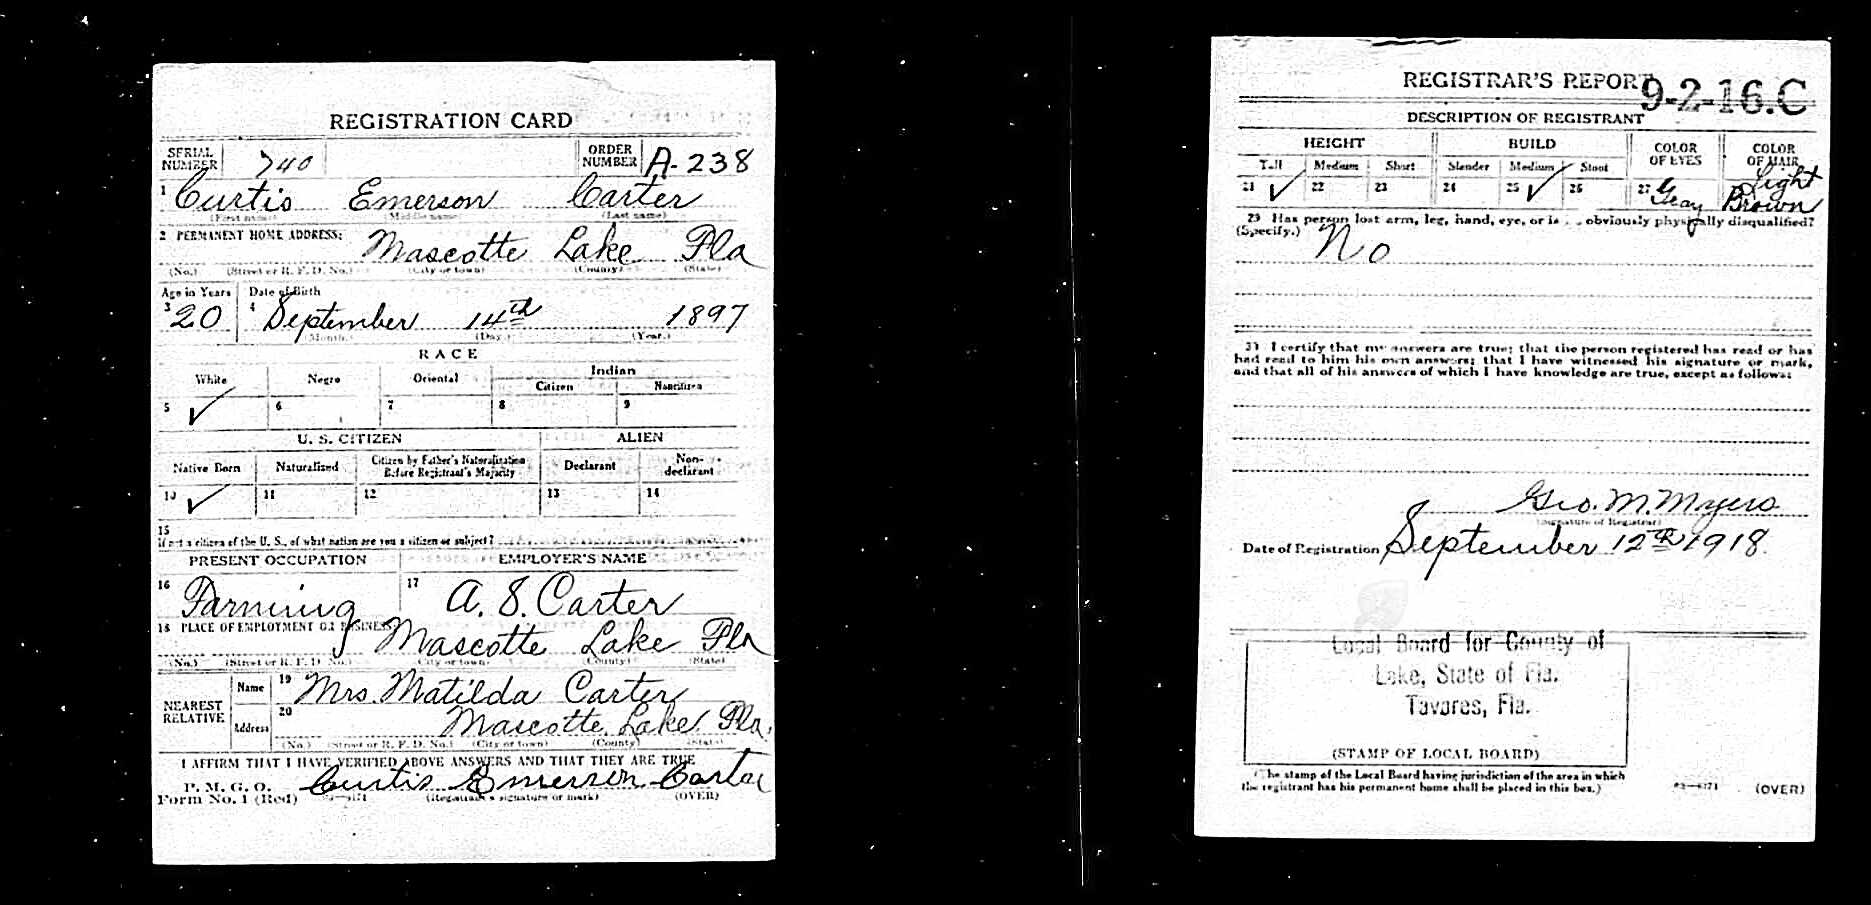 REGISTRATION CARD
SERIAL NUMBER 740 ORDER NUMBER A-238
1 Curtis Emerson Carter
(First name) (Middle name) (Last name)
2 PERMANENT HOME ADDRESS:
Mascotte Lake Fla
(No.) (Street or R. F. D. No.) (City or town) (County) (State)
Age in Years Date of Birth
3 20 4 September 14th 1897
(Month.) (Day.) (Year.)
RACE
White Negro Oriental Indian
Citizen Noncitizen
5 ✓ 6 7 8 9
U. S. CITIZEN ALIEN
Native Born Naturalized Citizen by Father's Naturalization Before Registrant's Majority Declarant Non-declarant
10 ✓ 11 12 13 14
15
If not a citizen of the U. S., of what nation are you a citizen or subject?
PRESENT OCCUPATION EMPLOYER'S NAME
16 Farming 17 A. S. Carter
18 PLACE OF EMPLOYMENT OR BUSINESS
Mascotte Lake Fla
(No.) (Street or R. F. D. No.) (City or town) (County) (State)
NEAREST RELATIVE Name 19 Mrs. Matilda Carter
Address 20 Mascotte Lake Fla.
(No.) (Street or R. F. D. No.) (City or town) (County) (State)
I AFFIRM THAT I HAVE VERIFIED ABOVE ANSWERS AND THAT THEY ARE TRUE
P. M. G. O.
Form No. 1 (Red) Curtis Emerson Carter
(Registrant's signature or mark) (OVER)
REGISTRAR'S REPORT
9-2-16.C
DESCRIPTION OF REGISTRANT
HEIGHT BUILD COLOR OF EYES COLOR OF HAIR
Tall Medium Short Slender Medium Stout
21 ✓ 22 23 24 25 ✓ 26 27 Gray Light Brown
29 Has person lost arm, leg, hand, eye, or is obviously physically disqualified?
(Specify.) No
30 I certify that my answers are true; that the person registered has read or has
had read to him his own answers; that I have witnessed his signature or mark,
and that all of his answers of which I have knowledge are true, except as follows:
Geo. M. Myers
(Signature of Registrar)
Date of Registration September 12th 1918
Local Board for County of
Lake, State of Fla.
Tavares, Fla.
(STAMP OF LOCAL BOARD)
(The stamp of the Local Board having jurisdiction of the area in which
the registrant has his permanent home shall be placed in this box.)
(OVER)